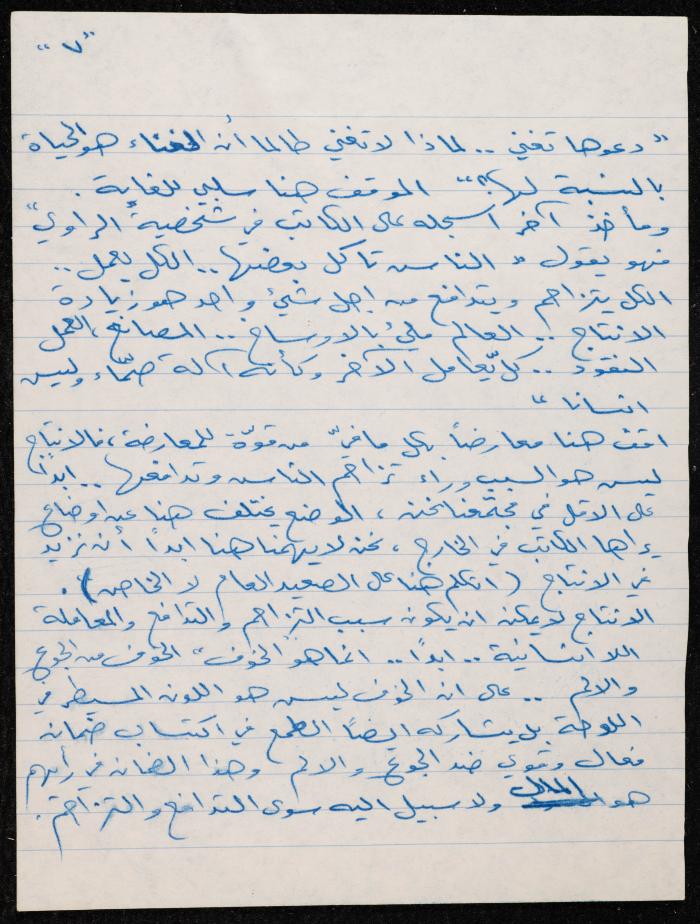 "٧"
"دعوها تغني .. لماذا لا تغني طالما أن الغناء هو الحياة
بالنسبة لها" الموقف هنا سلبي للغاية .
ومأخذ آخر اسجله على الكاتب في شخصية "الراوي"
فهو يقول " الناس تأكل بعضها .. الكل يعمل ..
الكل يتزاحم ويتدافع من اجل شيئ واحد هو زيادة
الانتاج .. العالم مليئ بالاوساخ .. المصانع، العمل
النقود .. كل يعامل الآخر وكأنه آلة صمّاء وليس
انسانا "
اقف هنا معارضاً بكل ما فيّ من قوّة للمعارضة، فالانتاج
ليس هو السبب وراء تزاحم الناس وتدافعها .. ابداً
على الاقل في مجتمعنا نحن ، الوضع يختلف هنا عن اوضاع
يراها الكاتب في الخارج ، نحن لا يهمنا هنا ابداً أن نزيد
في الانتاج (اتكلم هنا على الصعيد العام لا الخاص) .
الانتاج لا يمكن ان يكون سبب التزاحم والتدافع والمعاملة
اللا انسانية .. ابداً .. انما هو الخوف" الخوف من الجوع
والالم .. على ان الخوف ليس هو اللون المسيطر في
اللوحة بل يشاركه ايضاً الطمع في اكتساب ضمان
فعال وقوي ضد الجوع والالم وهذا الضمان في رأيهم
هو المال ولا سبيل اليه سوى التدافع والتزاحم .